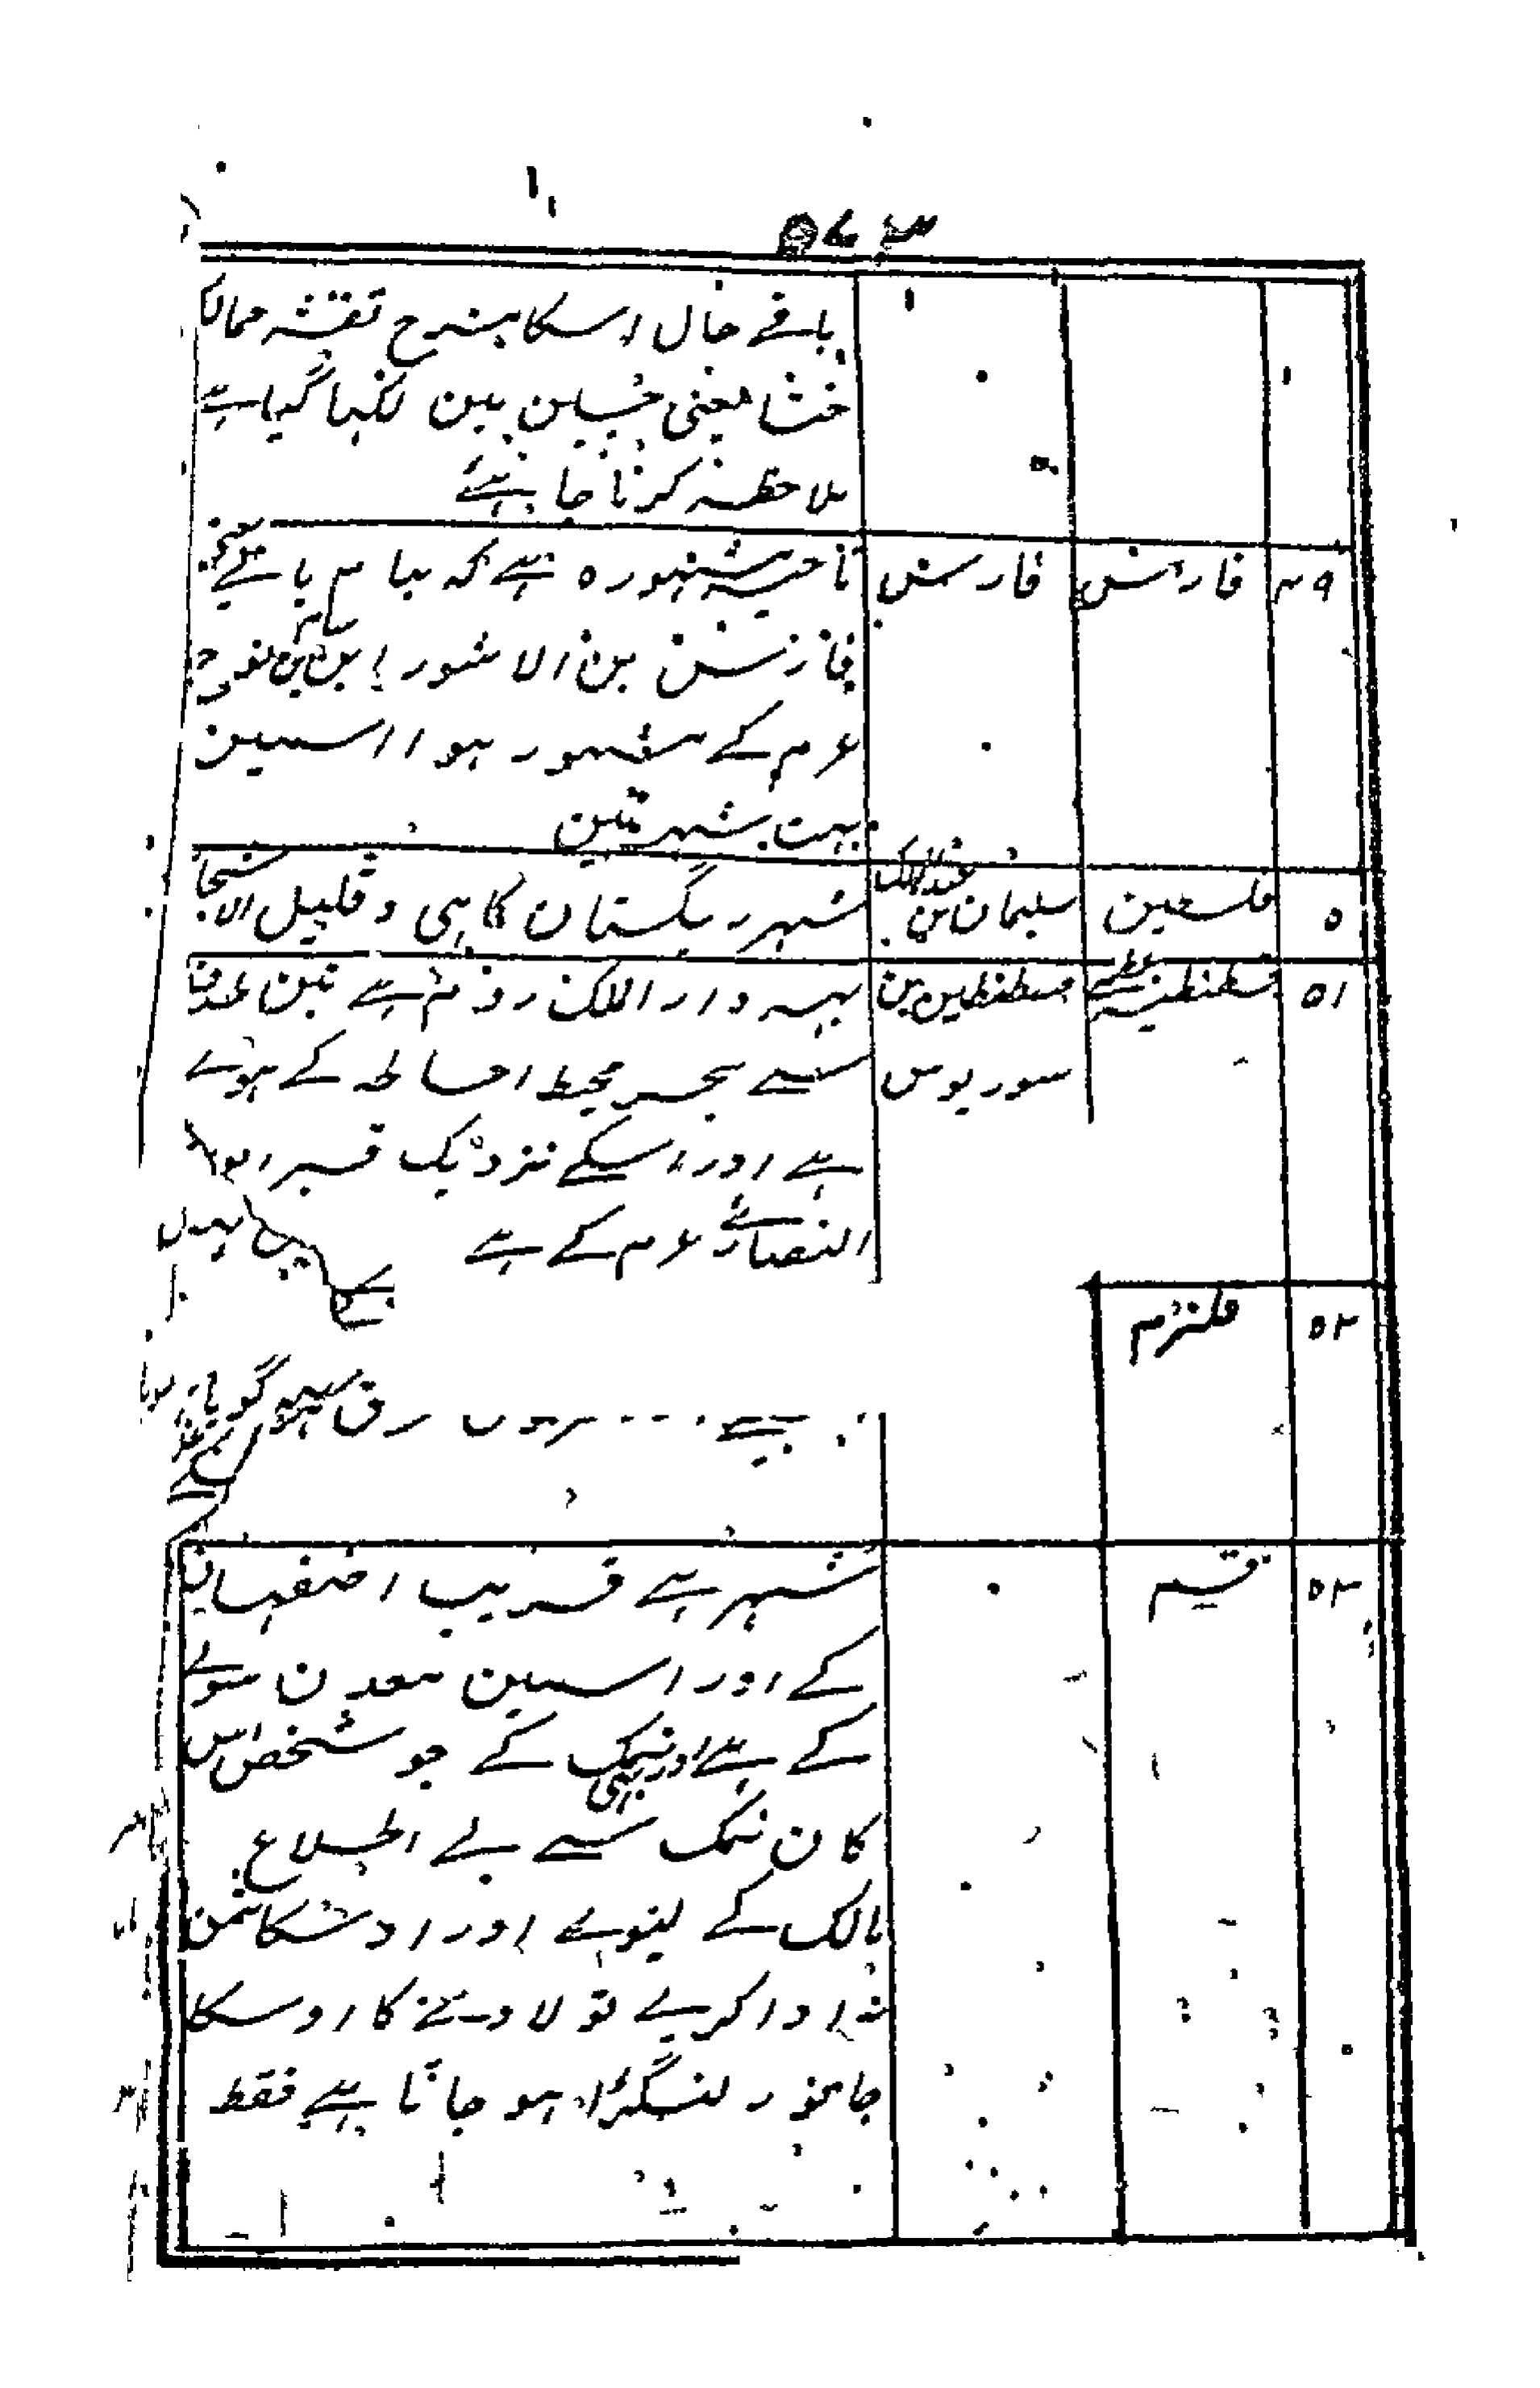 ۵۷۳
باقے حال اسکا بشرح نقشہ ممالک
ختا یعنی چین مین لکہا گیا ہے
ملاحظہ کرنا چاہئے
۴۹ فارس فارس ناحیہ مشہورہ ہے کہ بنام بانے
فارس بن الاشور ابن سام بن نوح
ع م کے مشہور ہوا اسمین
بہت شہر ہین
۵ فلسطین سلیمان بن عبدالملک شہر ریگستان کا ہی و قلیل الاشجار
۵۱ قسطنطنیہ عظمے قسطنطین بن یہہ دار الملک روم ہے تین طرف
سوریوس سے بحر محیط احاطہ کے ہوئے
ہے اور اسکے نزدیک قبر ابو
النصارے ع م کے ہے
۵۲ قلزم
گویا
۵۳ قم شہر ہے قریب اصفہان
کے اور اسمین معدن سونے
کے ہے اور نمک بہی کے جو شخص اس
کان نمک سے بے اطلاع
مالک کے لیوے اور اوسکا ثمن
نہ ادا کرے تو لادنے کا اوسکا
جانور لنگڑا ہو جاتا ہے فقط